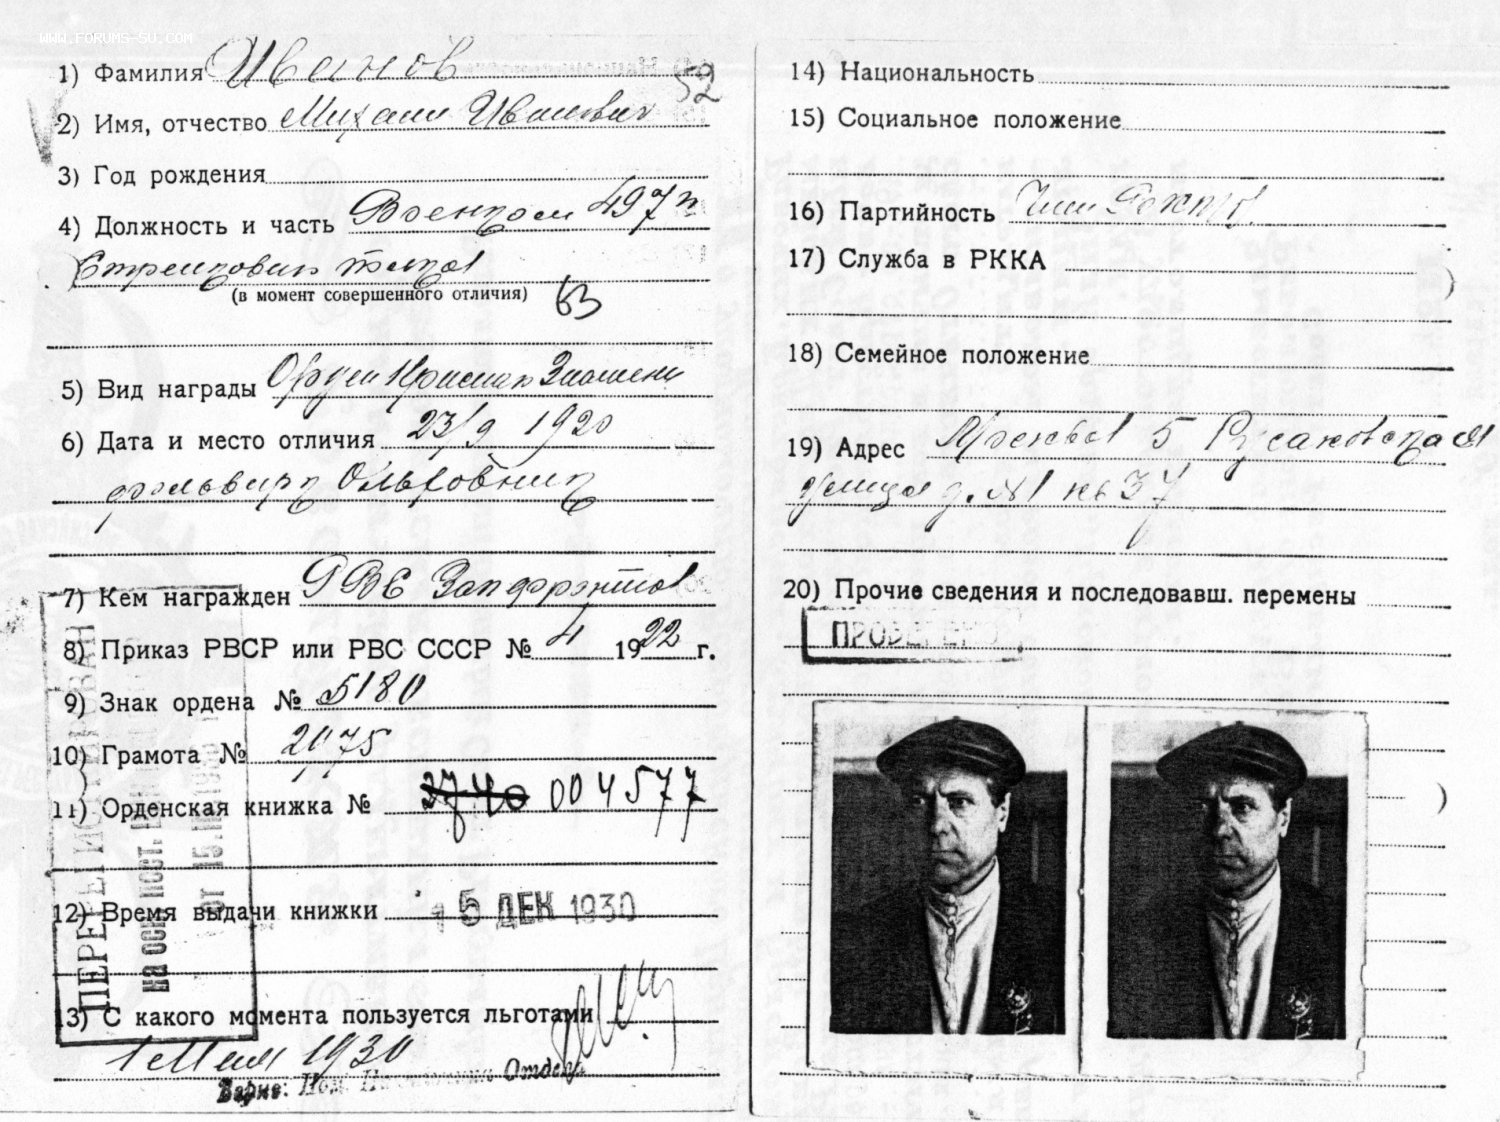 WWW.FORUMS-SU.COM
1) Фамилия Иванов
52
2) Имя, отчество Михаил Иванович
3) Год рождения
4) Должность и часть Военком 497 п
Стрелкового полка
(в момент совершенного отличия) 63
5) Вид награды Орден Красного Знамени
6) Дата и место отличия 23/9 1920
фольварк Ольховник
7) Кем награжден РВС Запфронта
8) Приказ РВСР или РВС СССР № 4 1922 г.
9) Знак ордена № 5180
10) Грамота № 2075
11) Орденская книжка № 2740 004577
12) Время выдачи книжки 15 ДЕК 1930
13) С какого момента пользуется льготами
1 Мая 1930
Верно: Пом. Начальника Отдела
ПЕРЕРЕГИСТРИРОВАН
на осн. пост.
от 15
14) Национальность
15) Социальное положение
16) Партийность Член ВКП(б)
17) Служба в РККА
18) Семейное положение
19) Адрес Москва 5 Русаковская
улица д. № 1 кв 37
20) Прочие сведения и последовавш. перемены
ПРОВЕРЕНО